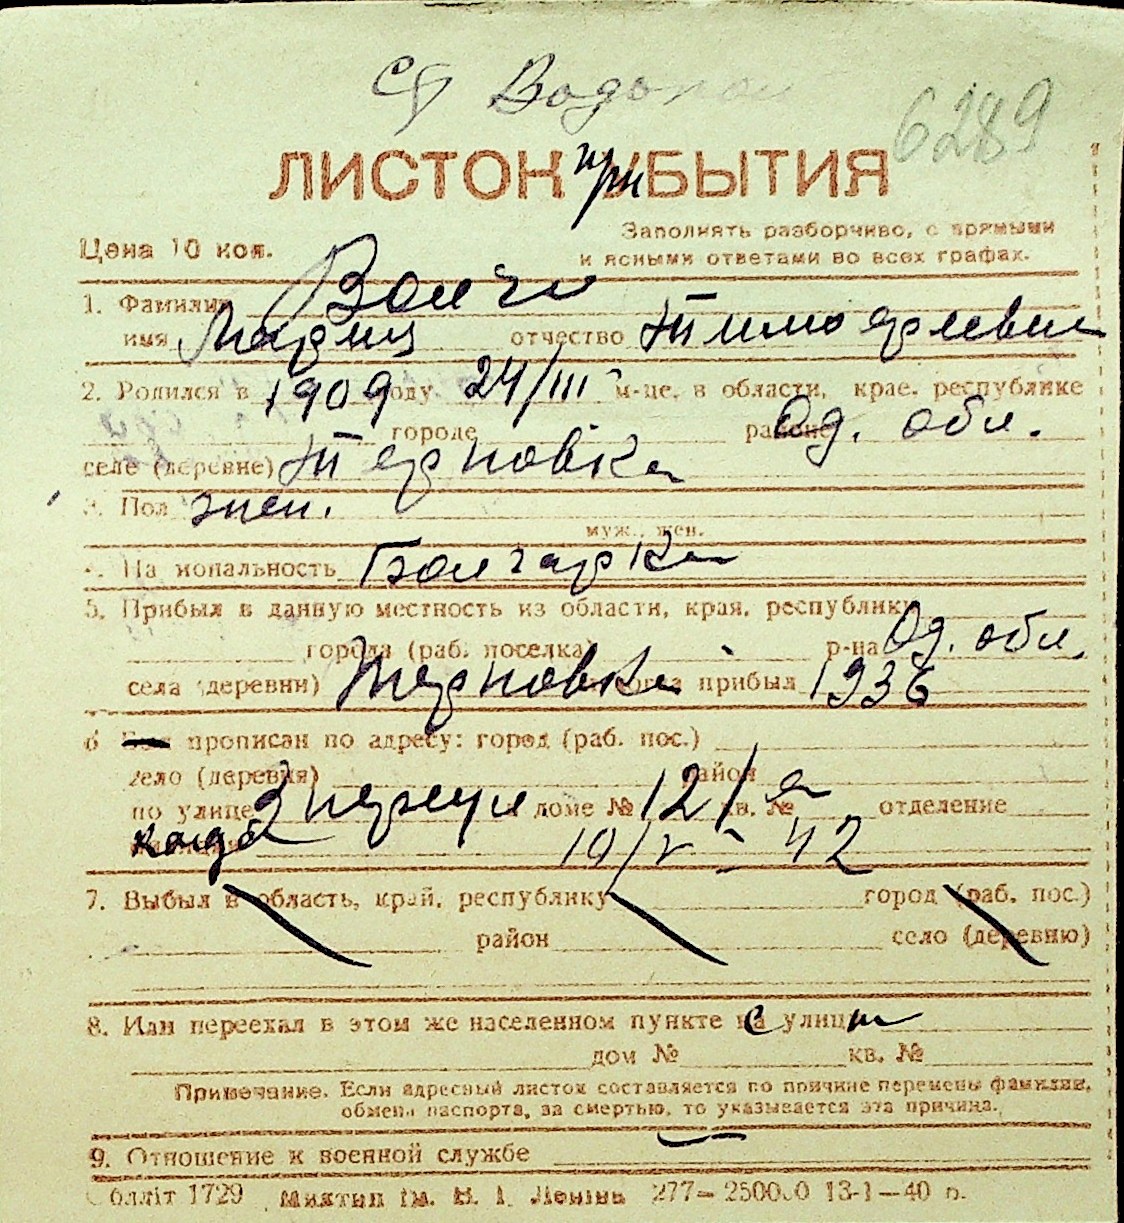 ст Водопой
6289
ЛИСТОК при УБЫТИЯ
Цена 10 коп.
Заполнять разборчиво, с прямыми
и ясными ответами во всех графах.
1. Фамилия Волчо
имя Мария отчество Тимофеевна
2. Родился в 1909 году 24/III м-це, в области, крае, республике
городе районе Од. обл.
селе (деревне) Терновка
3. Пол жен.
муж., жен.
4. Национальность Болгарка
5. Прибыл в данную местность из области, края, республики
города (раб. поселка) р-на Од. обл.
села (деревни) Терновка когда прибыл 1936
6 Был прописан по адресу: город (раб. пос.)
село (деревня) район
по улице 3 доме № 12/а кв. № отделение
когда милиции 10/V - 42
7. Выбыл в область, край, республику город (раб. пос.)
район село (деревню)
8. Или переехал в этом же населенном пункте на улицу
дом № кв. №
Примечание. Если адресный листок составляется по причине перемены фамилии,
обмена паспорта, за смертью, то указывается эта причина.
9. Отношение к военной службе
Облліт 1729 Миктип ім. В. І. Леніна 277—250000 13-1—40 р.